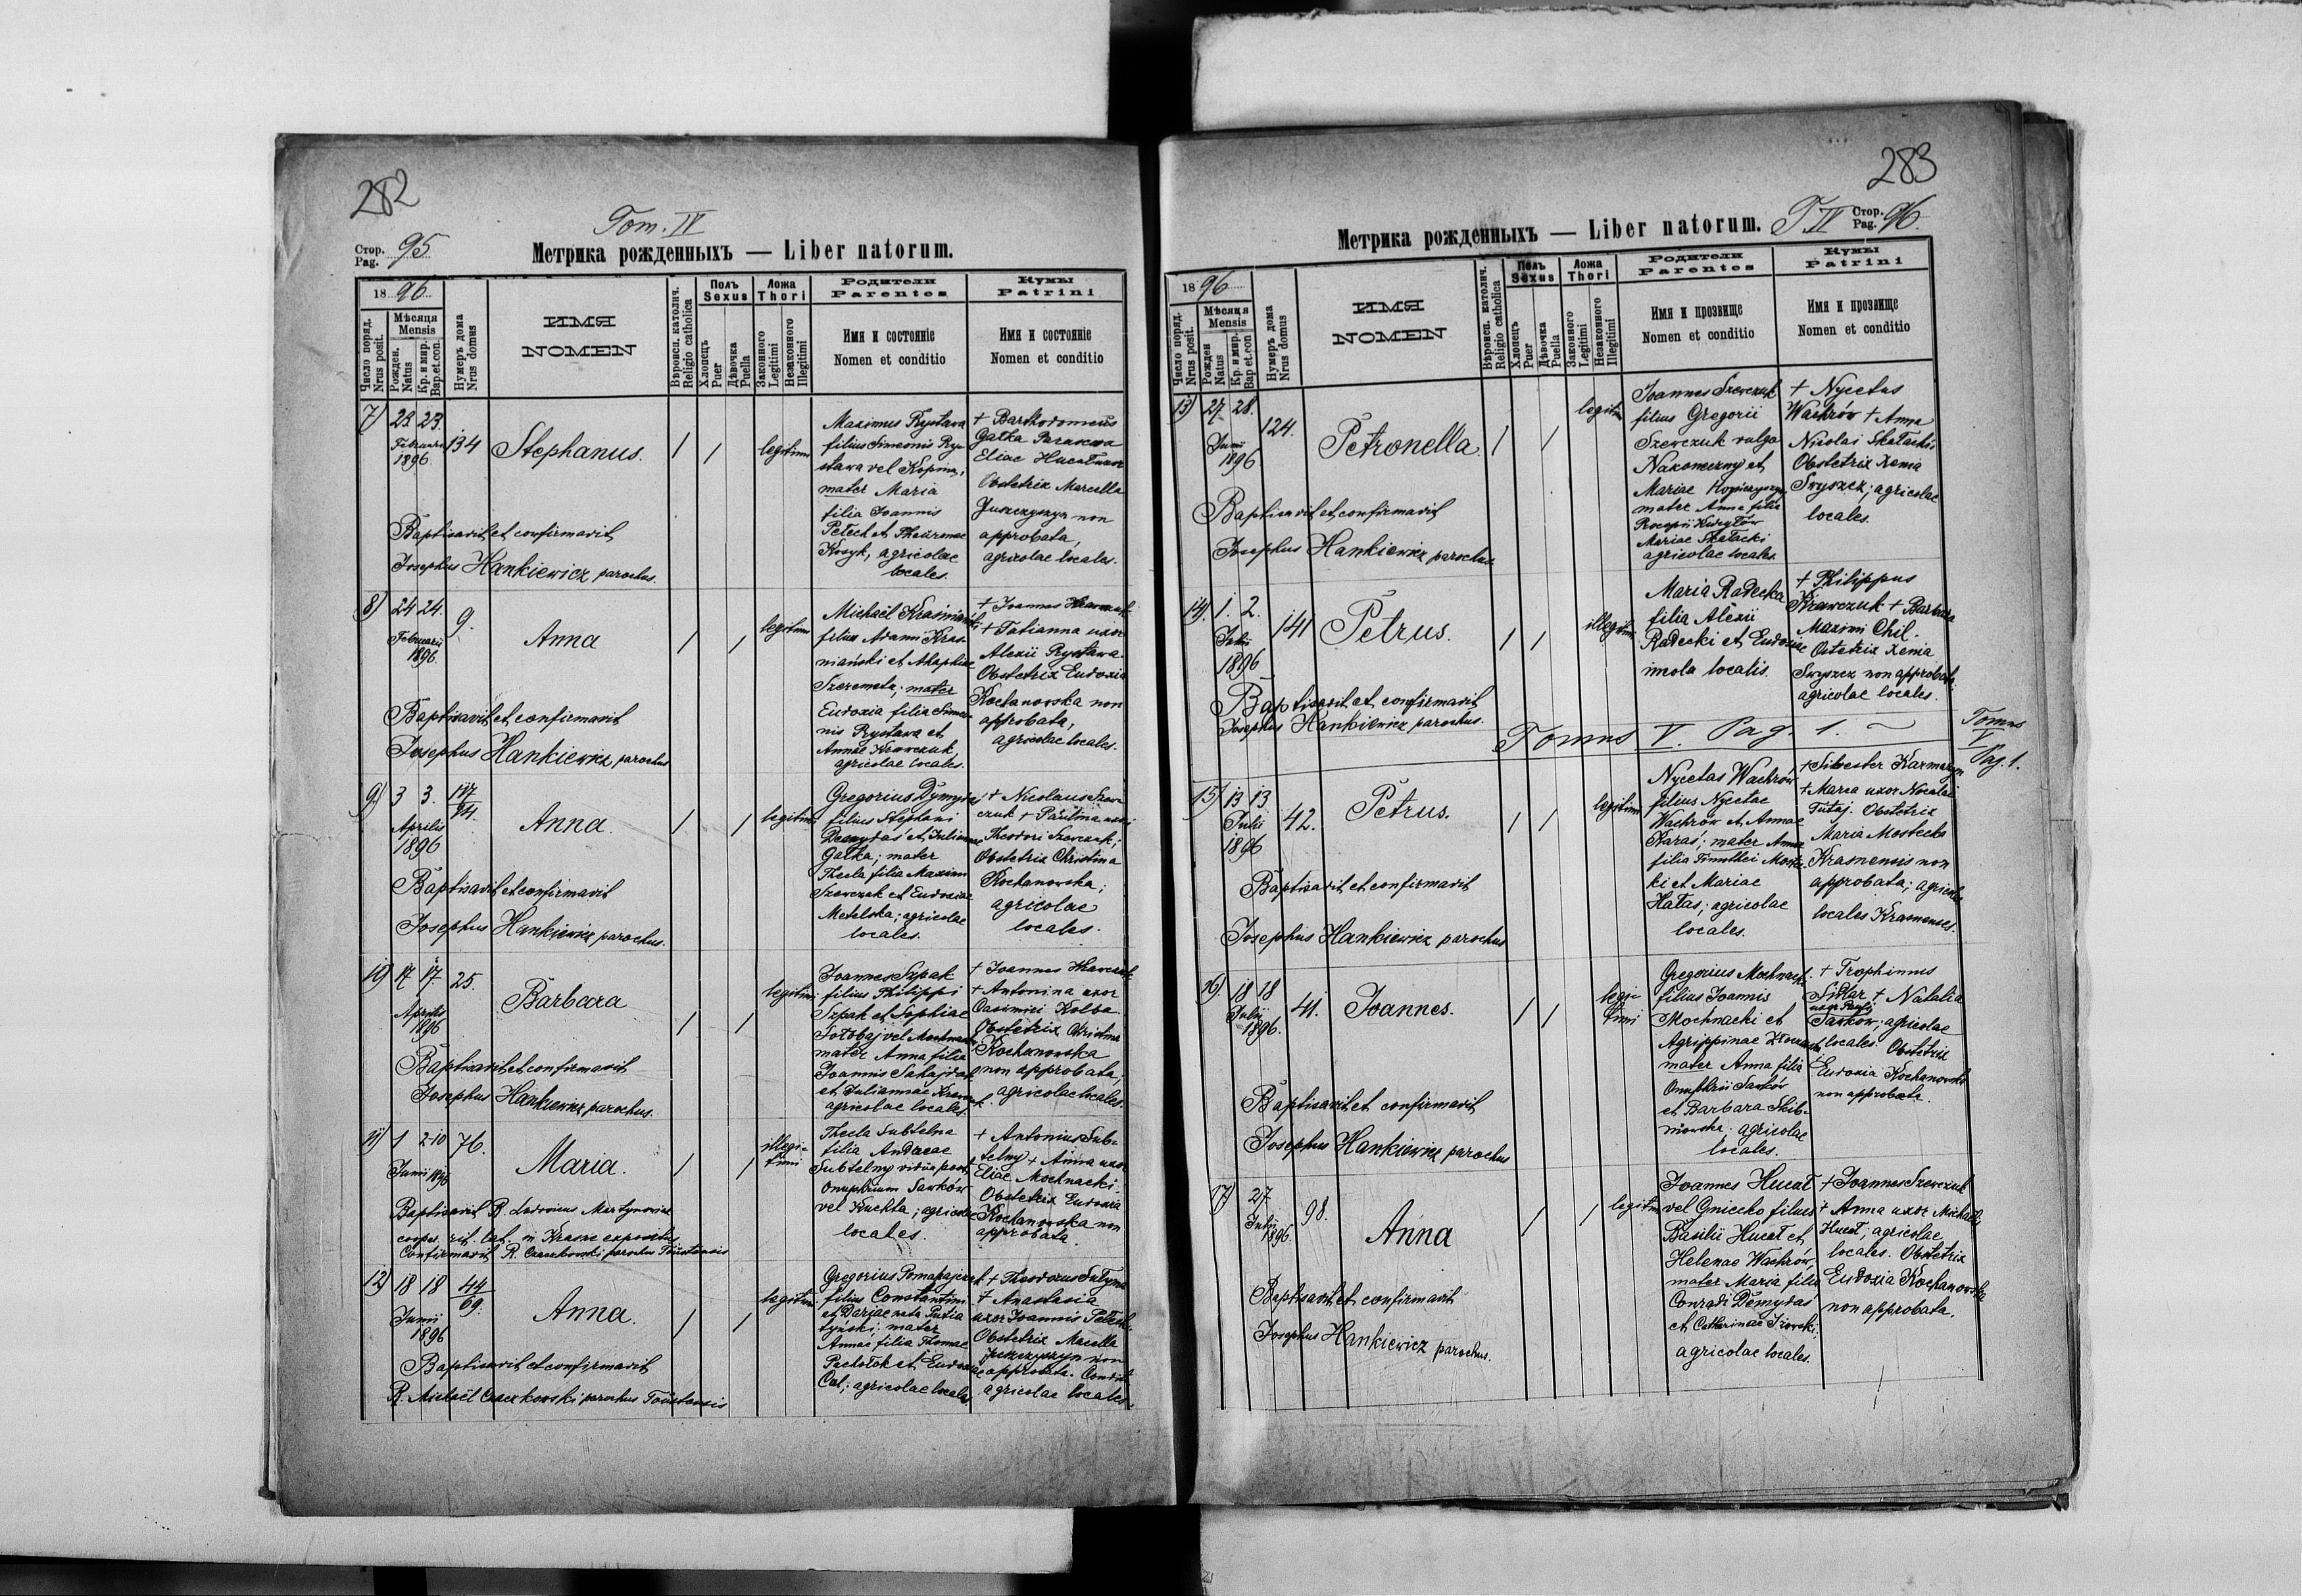 282
Tom. IV
Стор.
Pag. 95
Метрика рожденныхъ — Liber natorum.
18 96
Число поряд.
Nrus posit.
Мѣсяця
Mensis
Рожден.
Natus
Кр. и мир.
Bap. et. con.
Нумеръ дома
Nrus domus
ИМЯ
NOMEN
Вѣроисп. католич.
Religio catholica
Полъ
Sexus
Хлопецъ
Puer
Дѣвочка
Puella
Ложа
Thori
Законного
Legitimi
Незаконного
Illegitimi
Родители
Parentes
Имя и состояніе
Nomen et conditio
Кумы
Patrini
Имя и состояніе
Nomen et conditio
7) 22 23.
Februarii
1896.
134
Stephanus.
legitimi
Maximus Rystawa
filius Simeonis Ry-
stawa vel Kopina,
mater Maria
filia Joannis
Petech et
Kosyk, agricolae
locales.
+ Bartholomeus
Gatka Parascewa
Eliae Hucał uxor
Obstetrix Marcella
Juszczyszyn non
approbata,
agricolae locales.
Baptisavit et confirmavit
Josephus Hankiewicz parochus.
8) 24 24.
Februarii
1896.
9.
Anna
legitimi
Michaël Kraśniański
filius Adami Kras-
niański et Ahaphiae
Szeremeta; mater
Eudoxia filia Simeo-
nis Rystawa et
Annae Krawczuk,
agricolae locales.
+ Joannes Krawczuk
+ Tatianna uxor
Alexii Rystawa.
Obstetrix Eudoxia
Kochanowska non
approbata,
agricolae locales.
Baptisavit et confirmavit
Josephus Hankiewicz parochus
9) 3 3.
Aprilis
1896
94.
Anna.
legitimi
Gregorius Dymydas
filius Stephani
et Julianna
Gatka; mater
Thecla filia Maximi
Szewczuk et Eudoxiae
Metelska; agricolae
locales.
+ Nicolaus Szew-
czuk + Paulina uxor
Theodori Szewczuk;
Obstetrix Christina
Kochanowska;
agricolae
locales.
Baptisavit et confirmavit
Josephus Hankiewicz parochus.
10) 17 17.
Aprilis
1896
25.
Barbara
legitimi
Joannes Szpak
filius Philippi
Szpak et Sophiae
Totobaj vel
mater Anna filia
Joannis Sahajdak
et Juliannae
agricolae locales
+ Joannes Krawczuk
+ Antonina uxor
Casimiri Kolba.
Obstetrix Christina
Kochanowska
non approbata;
agricolae locales.
Baptisavit et confirmavit
Josephus Hankiewicz parochus.
11) 1 2-10
Junii 1896
76.
Maria.
illegi-
timi
Thecla Subtelna
filia Andreae
Subtelny vidua post
Onuphrium Sawków
vel Kuchta; agricolae
locales.
+ Antonius Sub-
telny + Anna uxor
Eliae Mochnacki.
Obstetrix Eudoxia
Kochanowska non
approbata.
Baptisavit R. Ludovicus Martynowicz
cooper. rit. lat. in Krasne expositus
Confirmavit R. Czaczkowski parochus Toustensis
12) 18 18
Junii
1896
44
69.
Anna.
legitimi
Gregorius
filius Constantini
et Dariae nata
mater
Anna, filia Thomae
Pachołok et Eudoxiae
Cał; agricolae locales
+ Theodorus
+ Anastasia
uxor Joannis
Obstetrix Marcella
Juszczyszyn non
approbata.
agricolae locales.
Baptisavit et confirmavit
R. Michaël Czaczkowski parochus Toustensis
283
Метрика рожденныхъ — Liber natorum. T. IV Стор.
Pag. 96
18 96
Число поряд.
Nrus posit.
Мѣсяця
Mensis
Рожден
Natus
Кр. и мир.
Bap et. con
Нумеръ дома
Nrus domus
ИМЯ
NOMEN
Вѣроисп. католич.
Religio catholica
Полъ
Sexus
Хлопецъ
Puer
Дѣвочка
Puella
Ложа
Thori
Законного
Legitimi
Незаконного
Illegitimi
Родители
Parentes
Имя и прозвище
Nomen et conditio
Кумы
Patrini
Имя и прозвище
Nomen et conditio
13) 27. 28.
Junii
1896
124.
Petronella.
legitimi
Joannes Szewczuk
filius Gregorii
Szewczuk vulgo
Nakoneczny et
Mariae
mater Anna filia
Procopii
Mariae Skałacki
agricolae locales.
+ Nycetas
Wachrów + Anna
Nicolai Skałacki
Obstetrix Xenia
Swyszcz; agricolae
locales.
Baptisavit et confirmavit
Josephus Hankiewicz parochus.
14) 1. 2.
Julii
1896
141
Petrus.
illegitimi
Maria Radecka
filia Alexii
Radecki et Eudoxiae
inola localis.
+ Philippus
Krawczuk + Barbara
Maximi Chil.
Ostetrix Xenia
Swyszcz non approbata,
agricolae locales.
Baptisavit et confirmavit
Josephus Hankiewicz parochus.
Tomus V. Pag. 1.
Tomus
V
Pag. 1.
15) 13 13
Julii
1896
42.
Petrus.
legitimi
Nycetas Wachrów
filius Nycetae
Wachrów et Annae
Karaś; mater Anna
filia Timothei Mostec-
ki et Mariae
Hałas; agricolae
locales.
+ Silvester Karmazyn
+ Maria uxor Nicolai
Tutaj. Obstetrix
Maria Mostecka
Krasnensis non
approbata; agricolae
locales Krasnenses.
Baptisavit et confirmavit
Josephus Hankiewicz parochus
16) 18 18
Julii
1896.
41.
Joannes.
legi-
timi
Gregorius Mochnacki
filius Joannis
Mochnacki et
Agrippinae
mater Anna filia
Onuphrii Sawków
et Barbara Skib-
niowska. agricolae
locales.
+ Trophimus
Sidlar + Natalia
uxor Pauli
Sawków; agricolae
locales. Obstetrix
Eudoxia Kochanowska
non approbata.
Baptisavit et confirmavit
Josephus Hankiewicz parochus
17) 27.
Julii
1896.
98.
Anna
legitimi
Joannes Hucał
vel Gniecko filius
Basilii Hucał et
Helenae Wachrów,
mater Maria filia
Conradi Demydaś
et Catharinae
agricolae locales.
+ Joannes Szewczuk
+ Anna uxor Michaelis
Hucał, agricolae
locales. Obstetrix
Eudoxia Kochanowska
non approbata.
Baptisavit et confirmavit
Josephus Hankiewicz parochus.